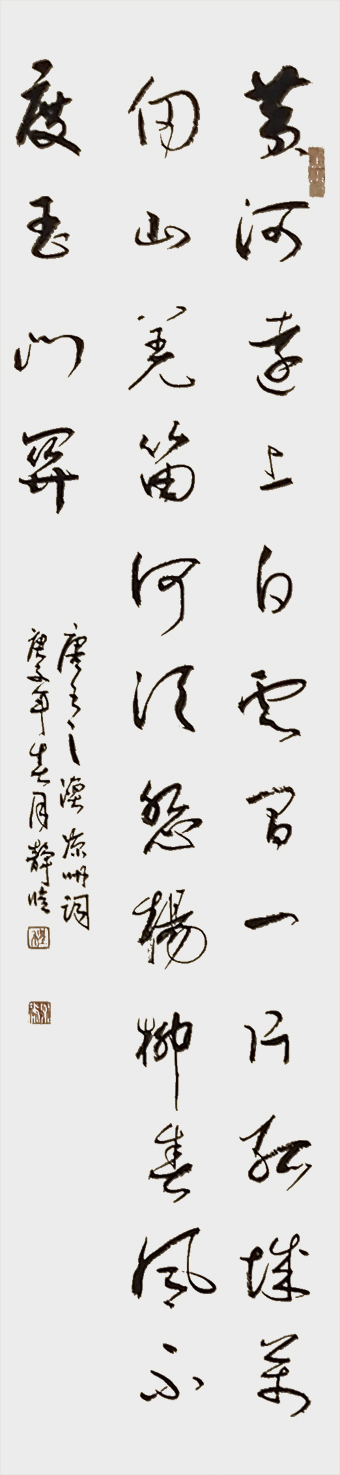 黄河远上白云间一片孤城万
仞山羌笛何须怨杨柳春风不
度玉门关
唐王之涣凉州词
庚子年春月静